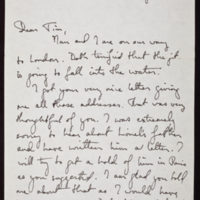 Dear Tim,
Nan and I are on our way
to London. Both terrified that the jet
is going to fall into the water.
I got your very nice letter giving
me all those addresses. That was very
thoughtful of you. I was extremely
sorry to hear about father
and have written him a letter. I
will try to get a hold of him in Paris
as you suggested. I am glad you told
me about that as I would have